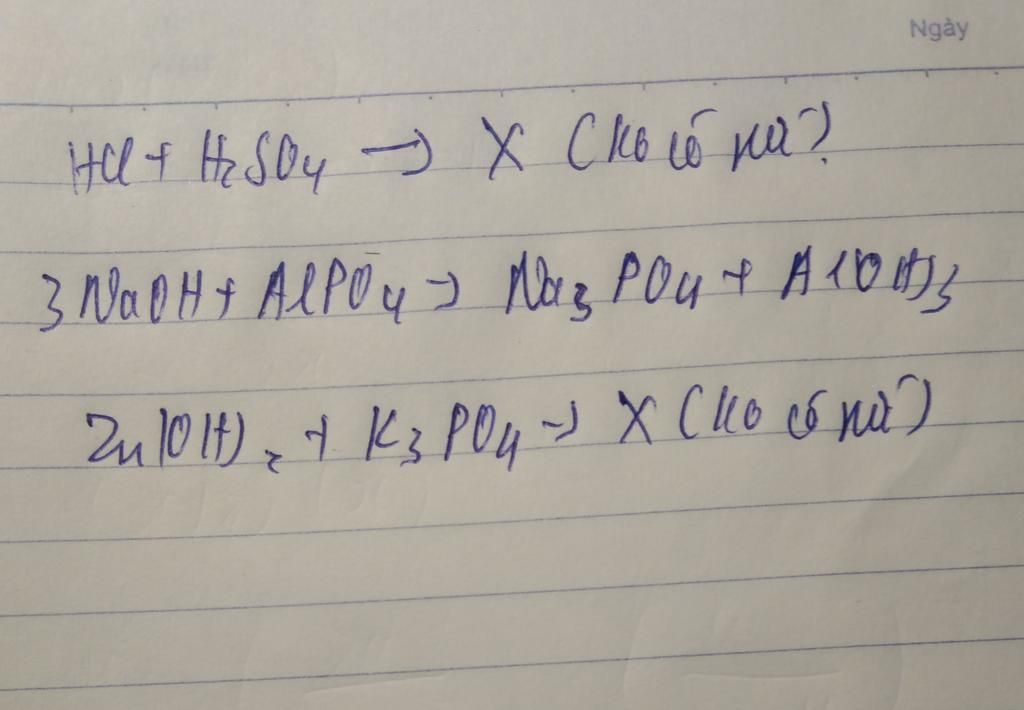 Ngày
HCl + H₂SO₄ → X (Ko có
3 NaOH + AlPO₄ → Na₃PO₄ + Al(OH)₃
Zn(OH)₂ + K₃PO₄ → X (Ko có